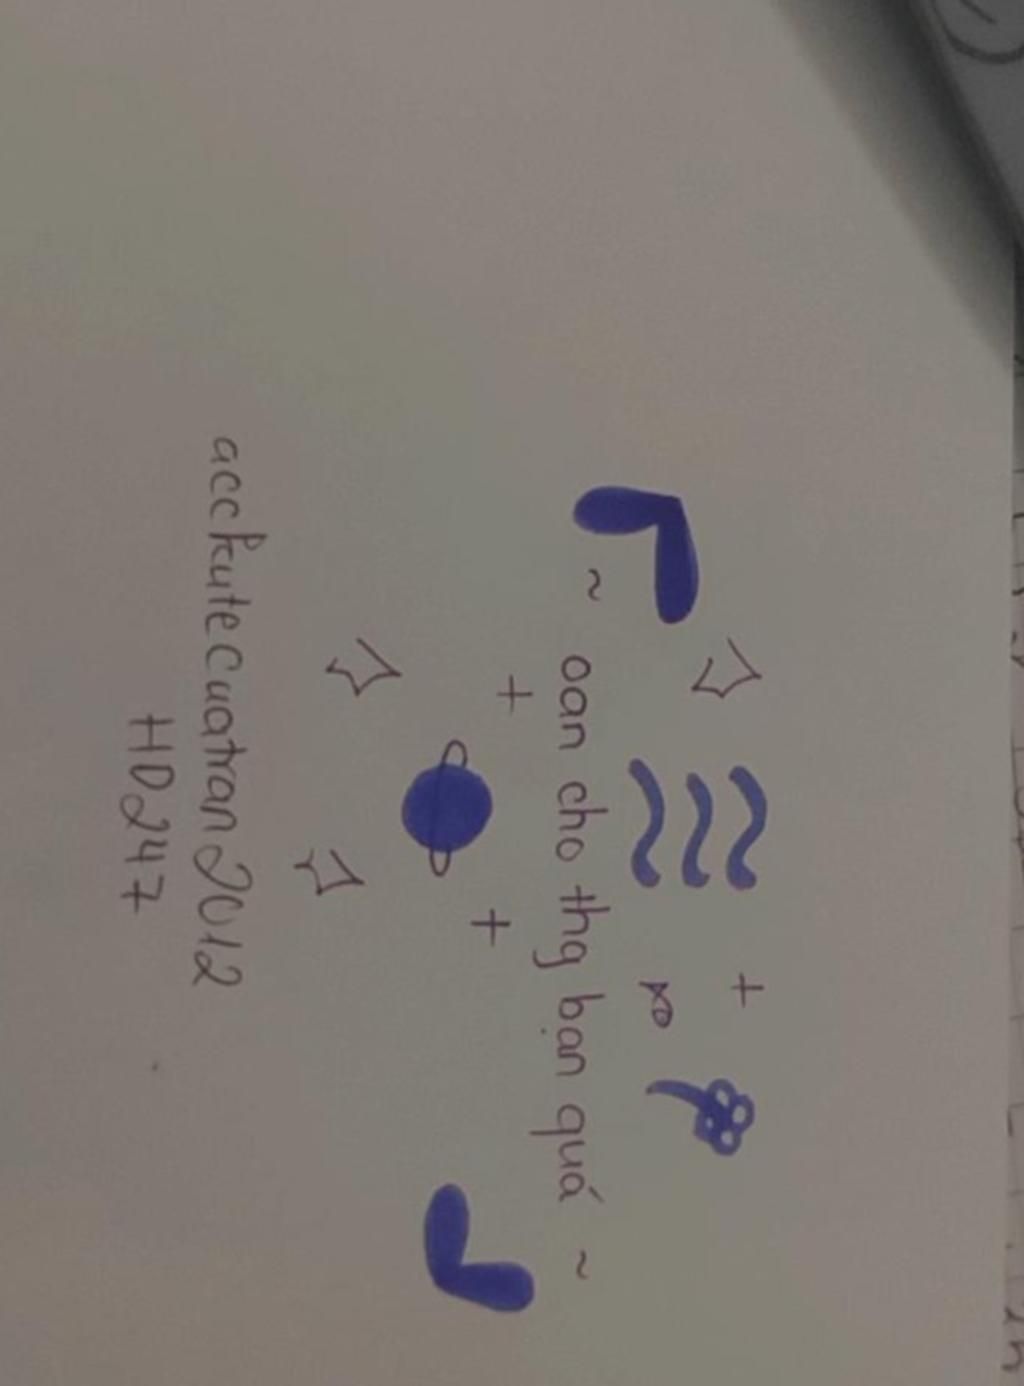 ~ oan cho thg bạn quá ~
acckutecuatran2012
HD247